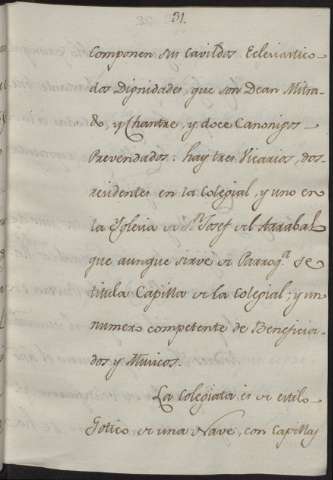 31.
Componen su Cavildo Eclesiastico
dos Dignidades, que son Dean Mitra-
do, y Chantre, y doce Canonigos
Prevendados: hay tres Vicarios, dos
residentes en la Colegial, y uno en
la Yglesia de Sn. Josef del Arrabal
que aunque sirve de Parroqa. se
titula Capilla de la Colegial; y un
numero competente de Beneficia-
dos y Musicos.
La Colegiata es de estilo
Gotico de una Nave, con Capillas